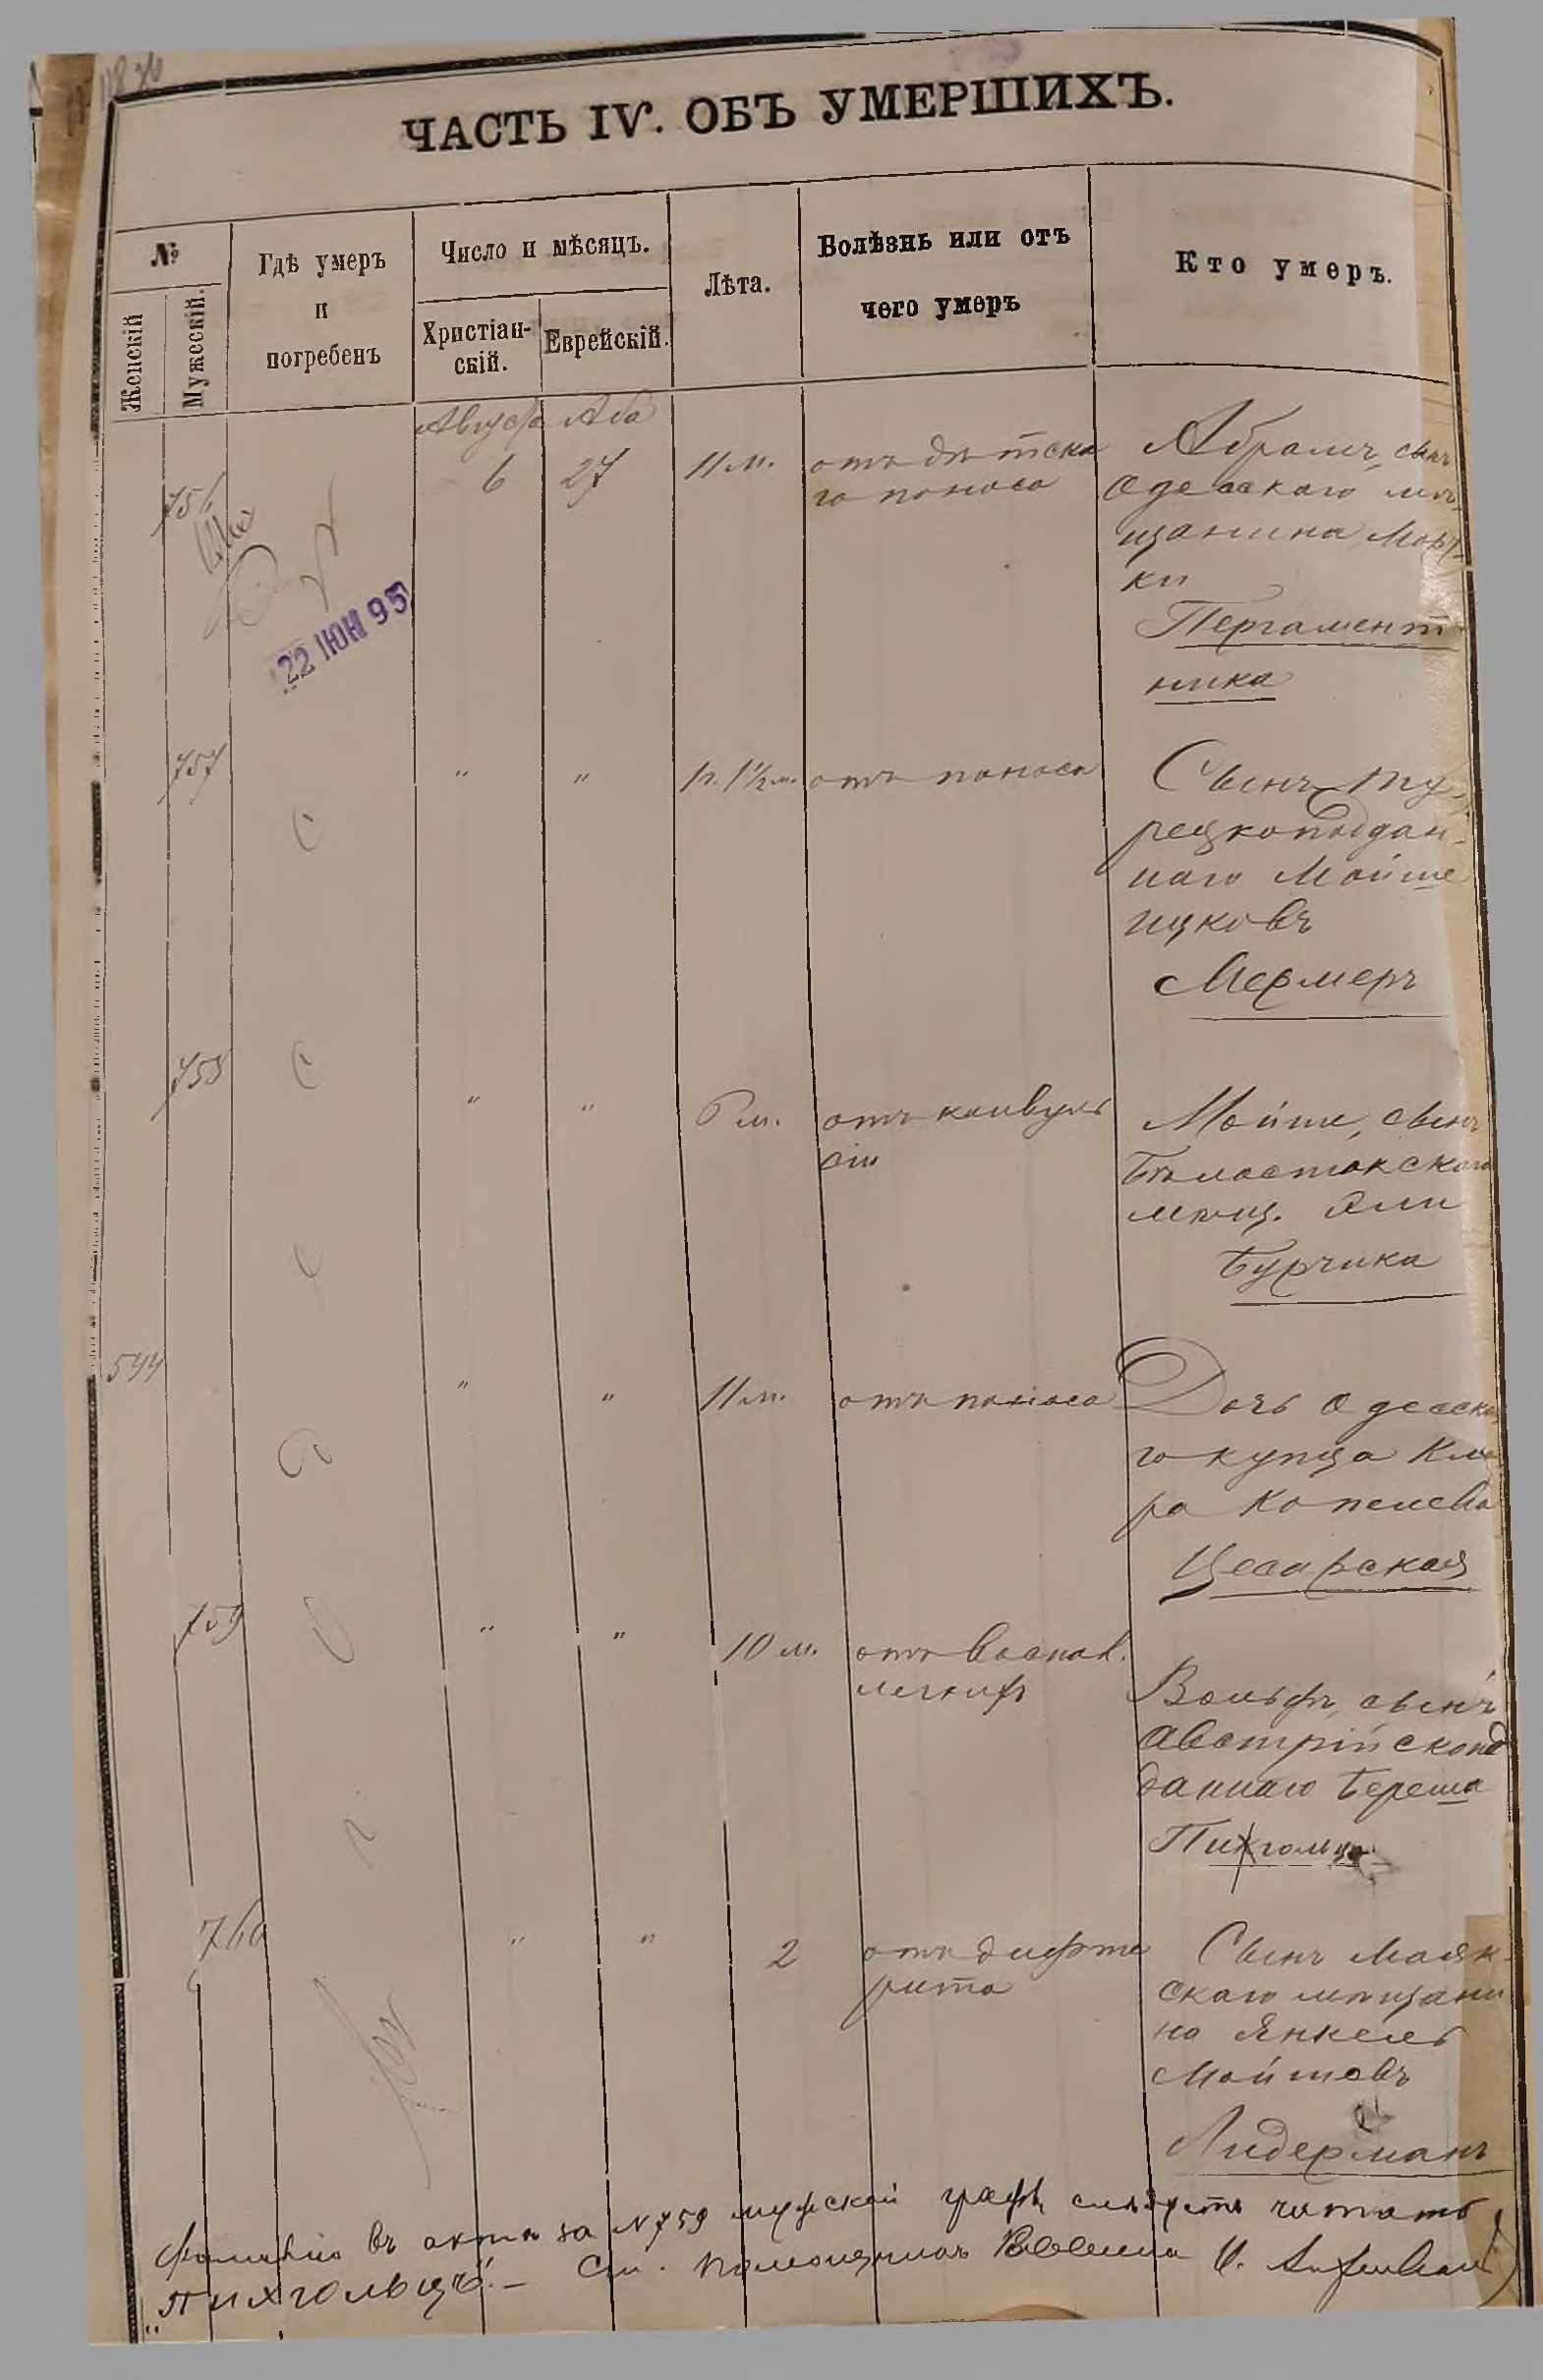 ЧАСТЬ IV. ОБЪ УМЕРШИХЪ.
№
Женскій
Мужескій.
Гдѣ умеръ
и
погребенъ
Число и мѣсяцъ.
Христіан-
скій.
Еврейскій.
Лѣта.
Болѣзнь или отъ
чего умеръ
Кто умеръ.
Августа Аба
756
6 27 11 м.
отъ дѣтска
го поноса
Абрамъ, сынъ
Одесскаго мѣ
щанина Морд-
ки
Пергамент
ника
22 ІЮН 95
757
" " 1 г. 1½ м. отъ поноса
Сынъ ту-
рецкоподдан-
наго Мойше
Ицковъ
Мермеръ
758
" " 6 м.
отъ конвуль
сіи
Мойше, сынъ
Бѣлостокскаго
мѣщ. Эли
Бурчика
544
" " 11 м. отъ поноса
Дочь Одесска
го купца Кла
ра Копелева
Цесарская
759
" " 10 м.
отъ воспал.
легкихъ
Вольфъ, сынъ
Австрійскопод
даннаго Береша
Пихгольца
760
" " 2
отъ дифте
рита
Сынъ Маяк-
скаго мѣщани
на Янкель
Мойшовъ
Лидерманъ
Фамилію въ актѣ за № 759 мужской графы слѣдуетъ читать
"Пихгольцъ". – Ст. помощникъ Раввина